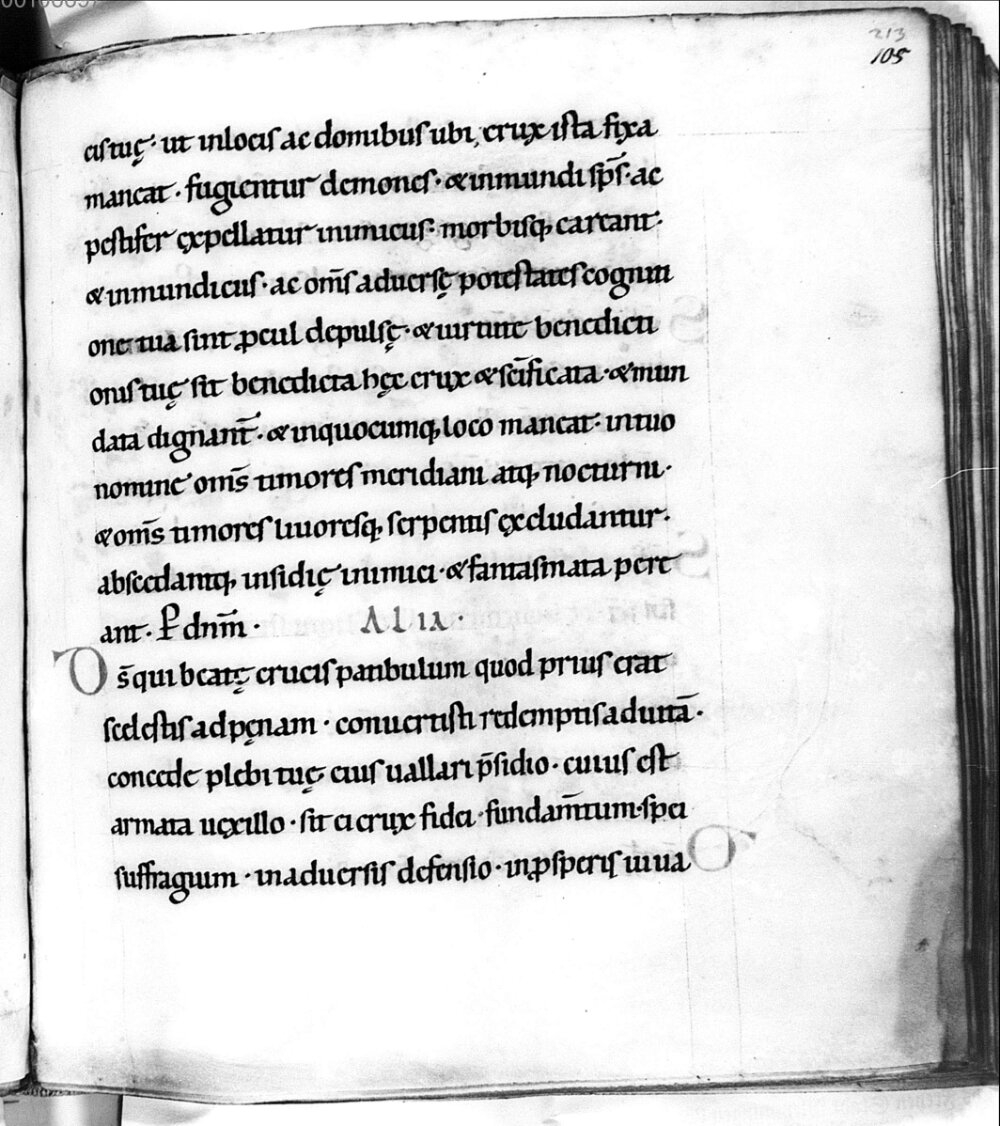 213
105
cistuę· ut inlocis ac domibus ubi, crux ista fixa
maneat · fugientur demones· & inmundi sp̅s· ac
pestifer ęxpellatur inimicus· morbisq; careant·
& inmundicus· ac om̅s aduersę potestates cogniti
one tua sint p̱cul depulsę· & uirtute benedicti
onis tuę sit benedicta hęc crux & sc̅ificata· & mun
data dignant̅· & inquocumq; loco maneat· in tuo
nomine om̅s timores meridiani atq; nocturni·
& om̅s timores liuoresq; serpentis ęxcludantur·
abscedantq; insidię inimici· & fantasmata pere
ant· P̱ dn̅m· ALIA·
Ds̅ qui beatę crucis patibulum quod prius erat
scelestis adpęnam · conuertisti redemptis aduita̅·
concede plebi tuę eius uallari p̅sidio· cuius est
armata uęxillo· sit ei crux fidei· fundam̅tum· spei
suffragium · inaduersis defensio· inp̱speris iuua